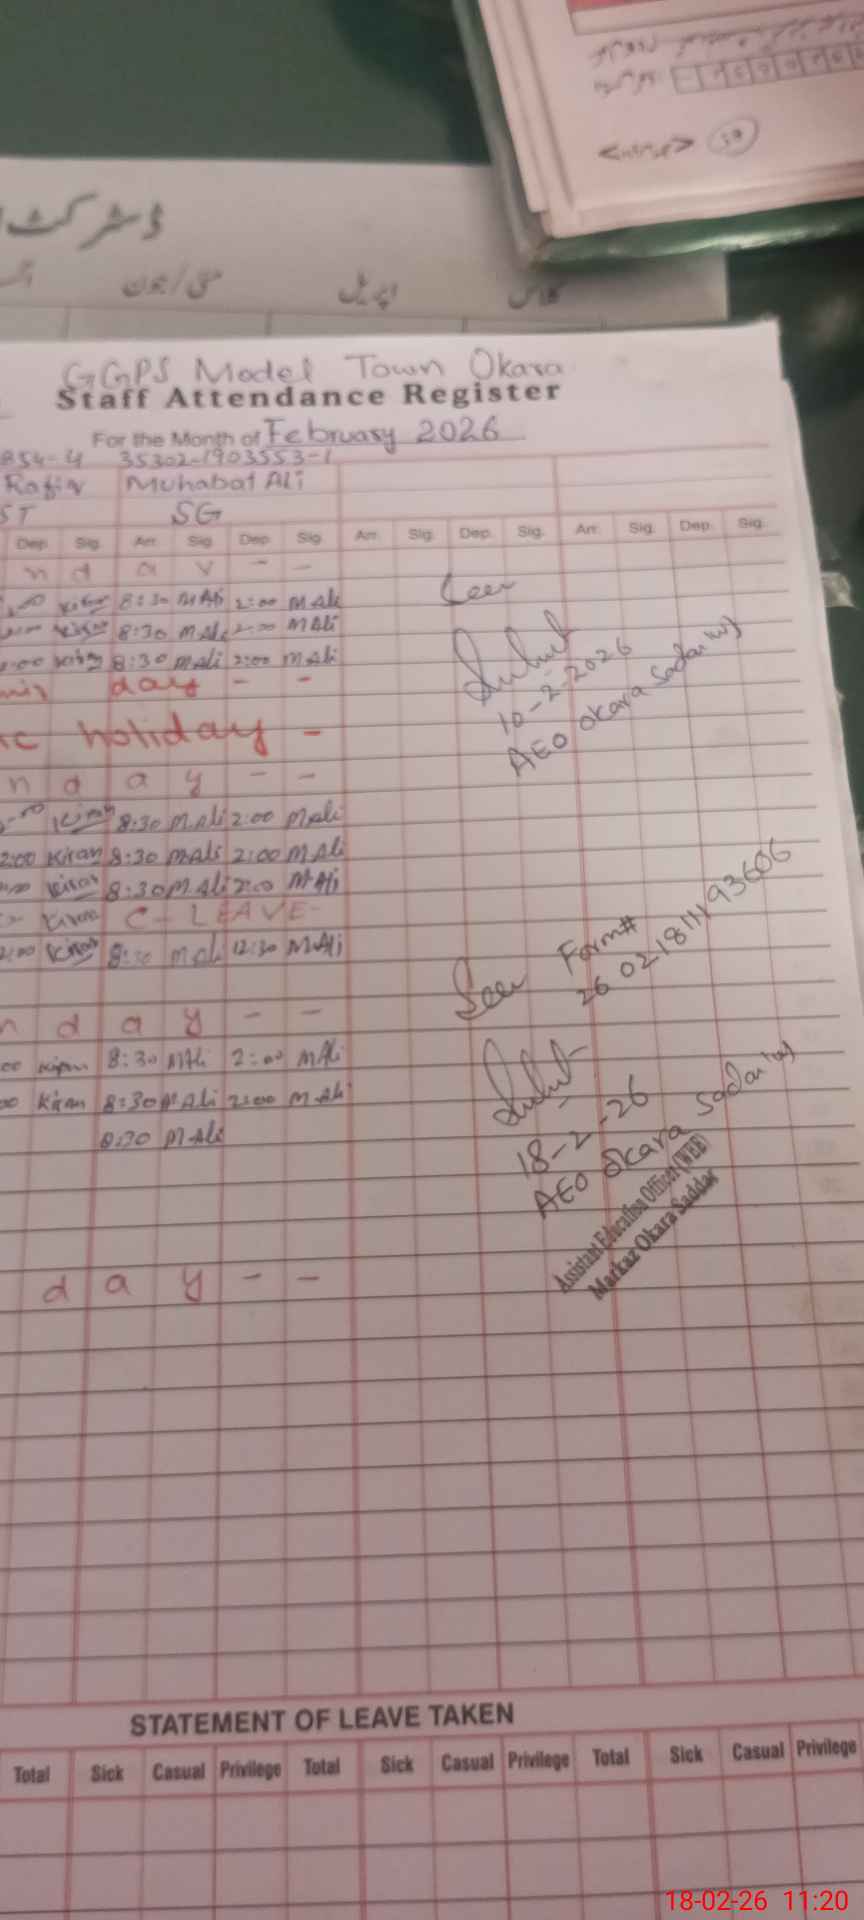 ڈسٹرکٹ
مئی/جون اپریل کلاس
GGPS Model Town Okara
Staff Attendance Register
For the Month of February 2026
854-4 35302-1903553-1
Rafiq Muhabat Ali
ST SG
Dep. Sig. Arr. Sig. Dep. Sig. Arr. Sig. Dep. Sig. Arr. Sig. Dep. Sig.
n d a y - -
Kiran 8:30 MAli 2:00 MAli
Seen
Kiran 8:30 MAli 2:00 MAli
:00 Kiran 8:30 MAli 2:00 MAli
10-2-2026
AEO Okara Sadar (w)
day - -
ic holiday -
n d a y - -
Kiran 8:30 MAli 2:00 MAli
2:00 Kiran 8:30 MAli 2:00 MAli
Kiran 8:30 MAli 2:00 MAli
Kiran C-LEAVE-
2:00 Kiran 8:30 MAli 12:30 MAli
Seen Form#
26 021811193606
n d a y - -
00 Kiran 8:30 MAli 2:00 MAli
00 Kiran 8:30 MAli 2:00 MAli
8:30 MAli
18-2-26
AEO Okara Sadar (w)
Assistant Education Officer (WEE)
Markaz Okara Saddar
d a y - -
STATEMENT OF LEAVE TAKEN
Total Sick Casual Privilege Total Sick Casual Privilege Total Sick Casual Privilege
18-02-26 11:20